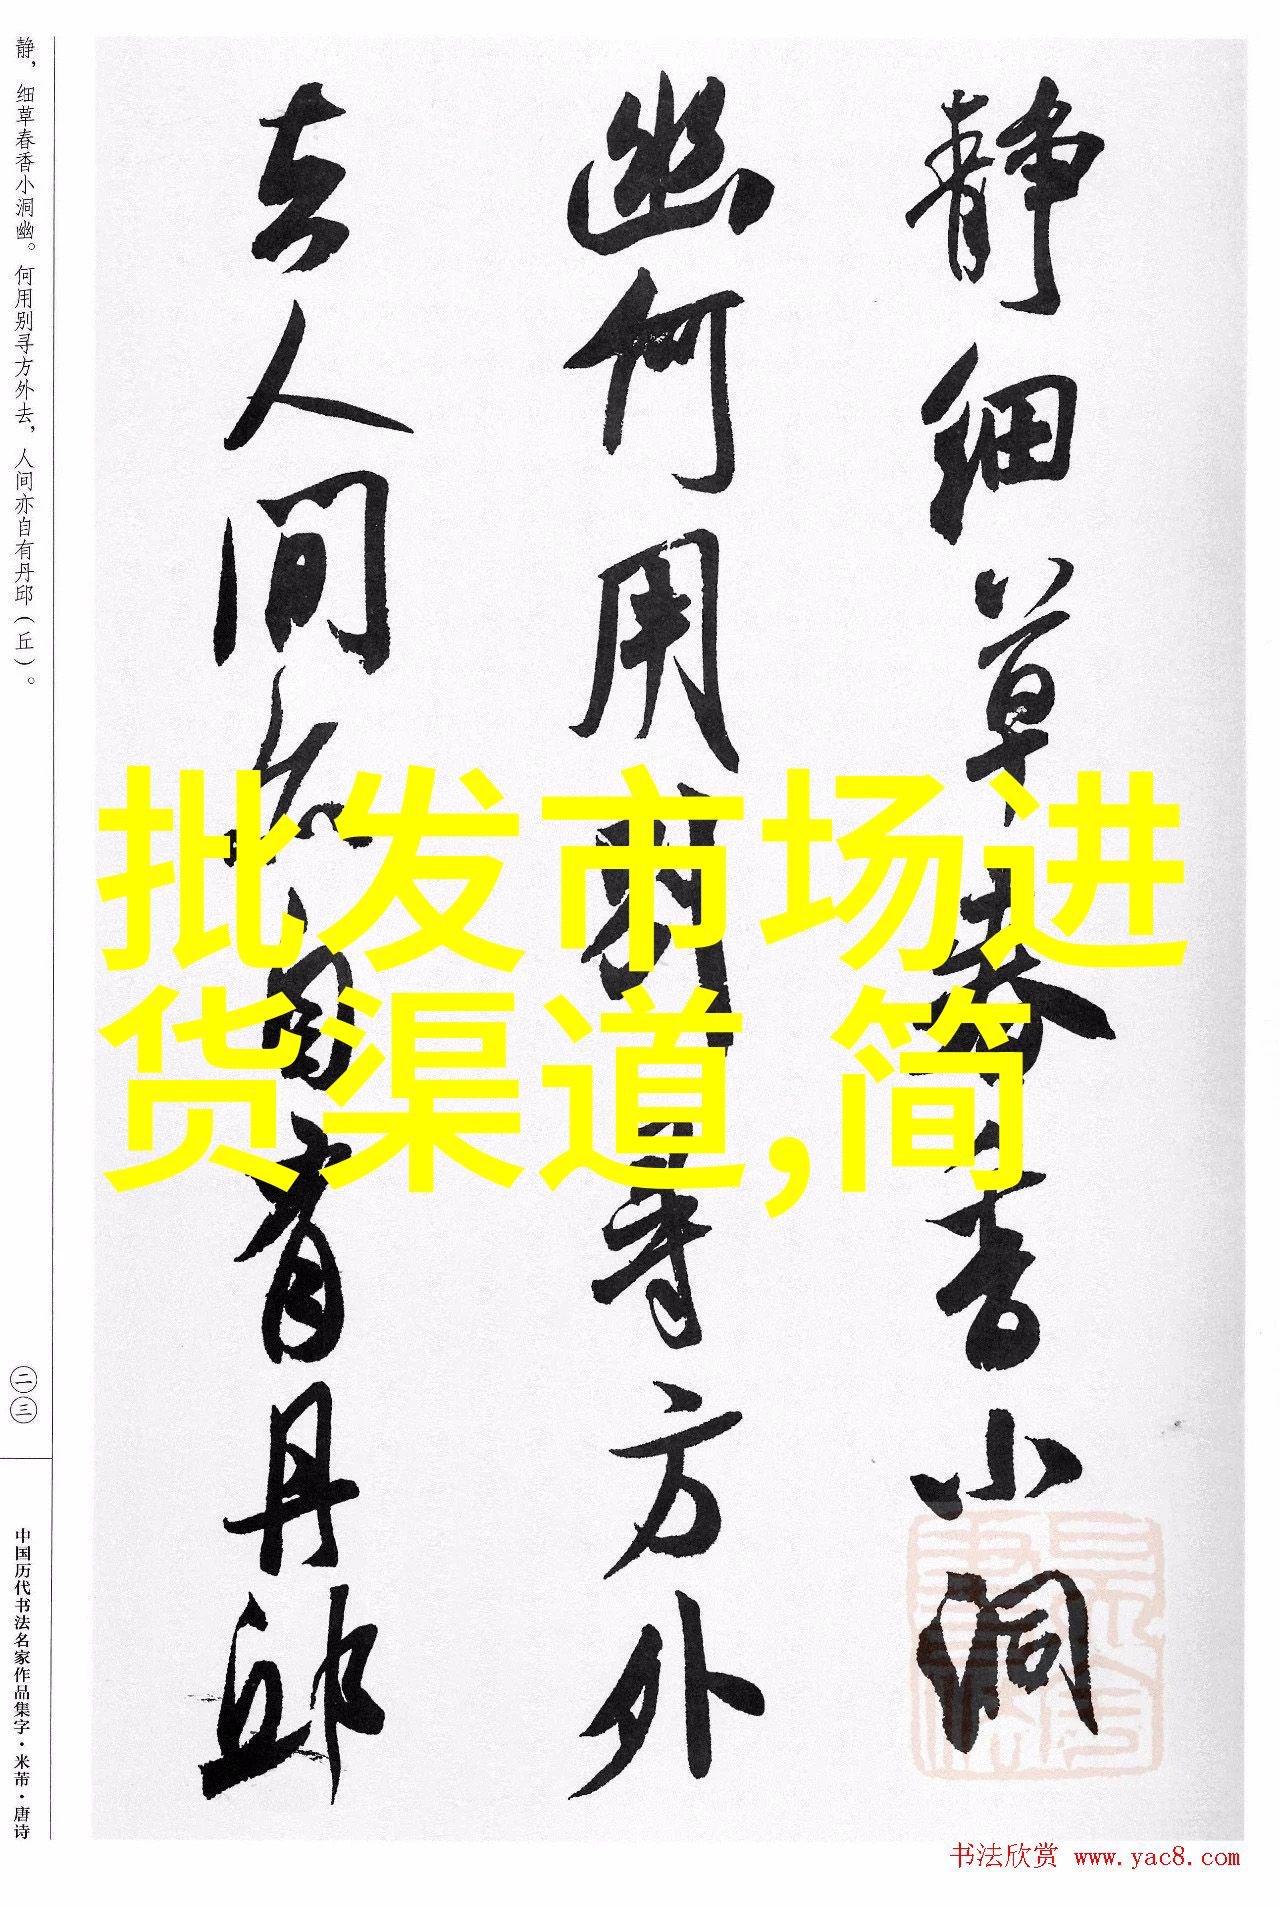 静细草春香小洞
幽何用别寻方外
去人间亦自有丹邱
批发市场进
货渠道,简
静，细草春香小洞幽。何用别寻方外去，人间亦自有丹邱（丘）。
二三
中国历代书法名家作品集字·米芾·唐诗
书法欣赏 www.yac8.com